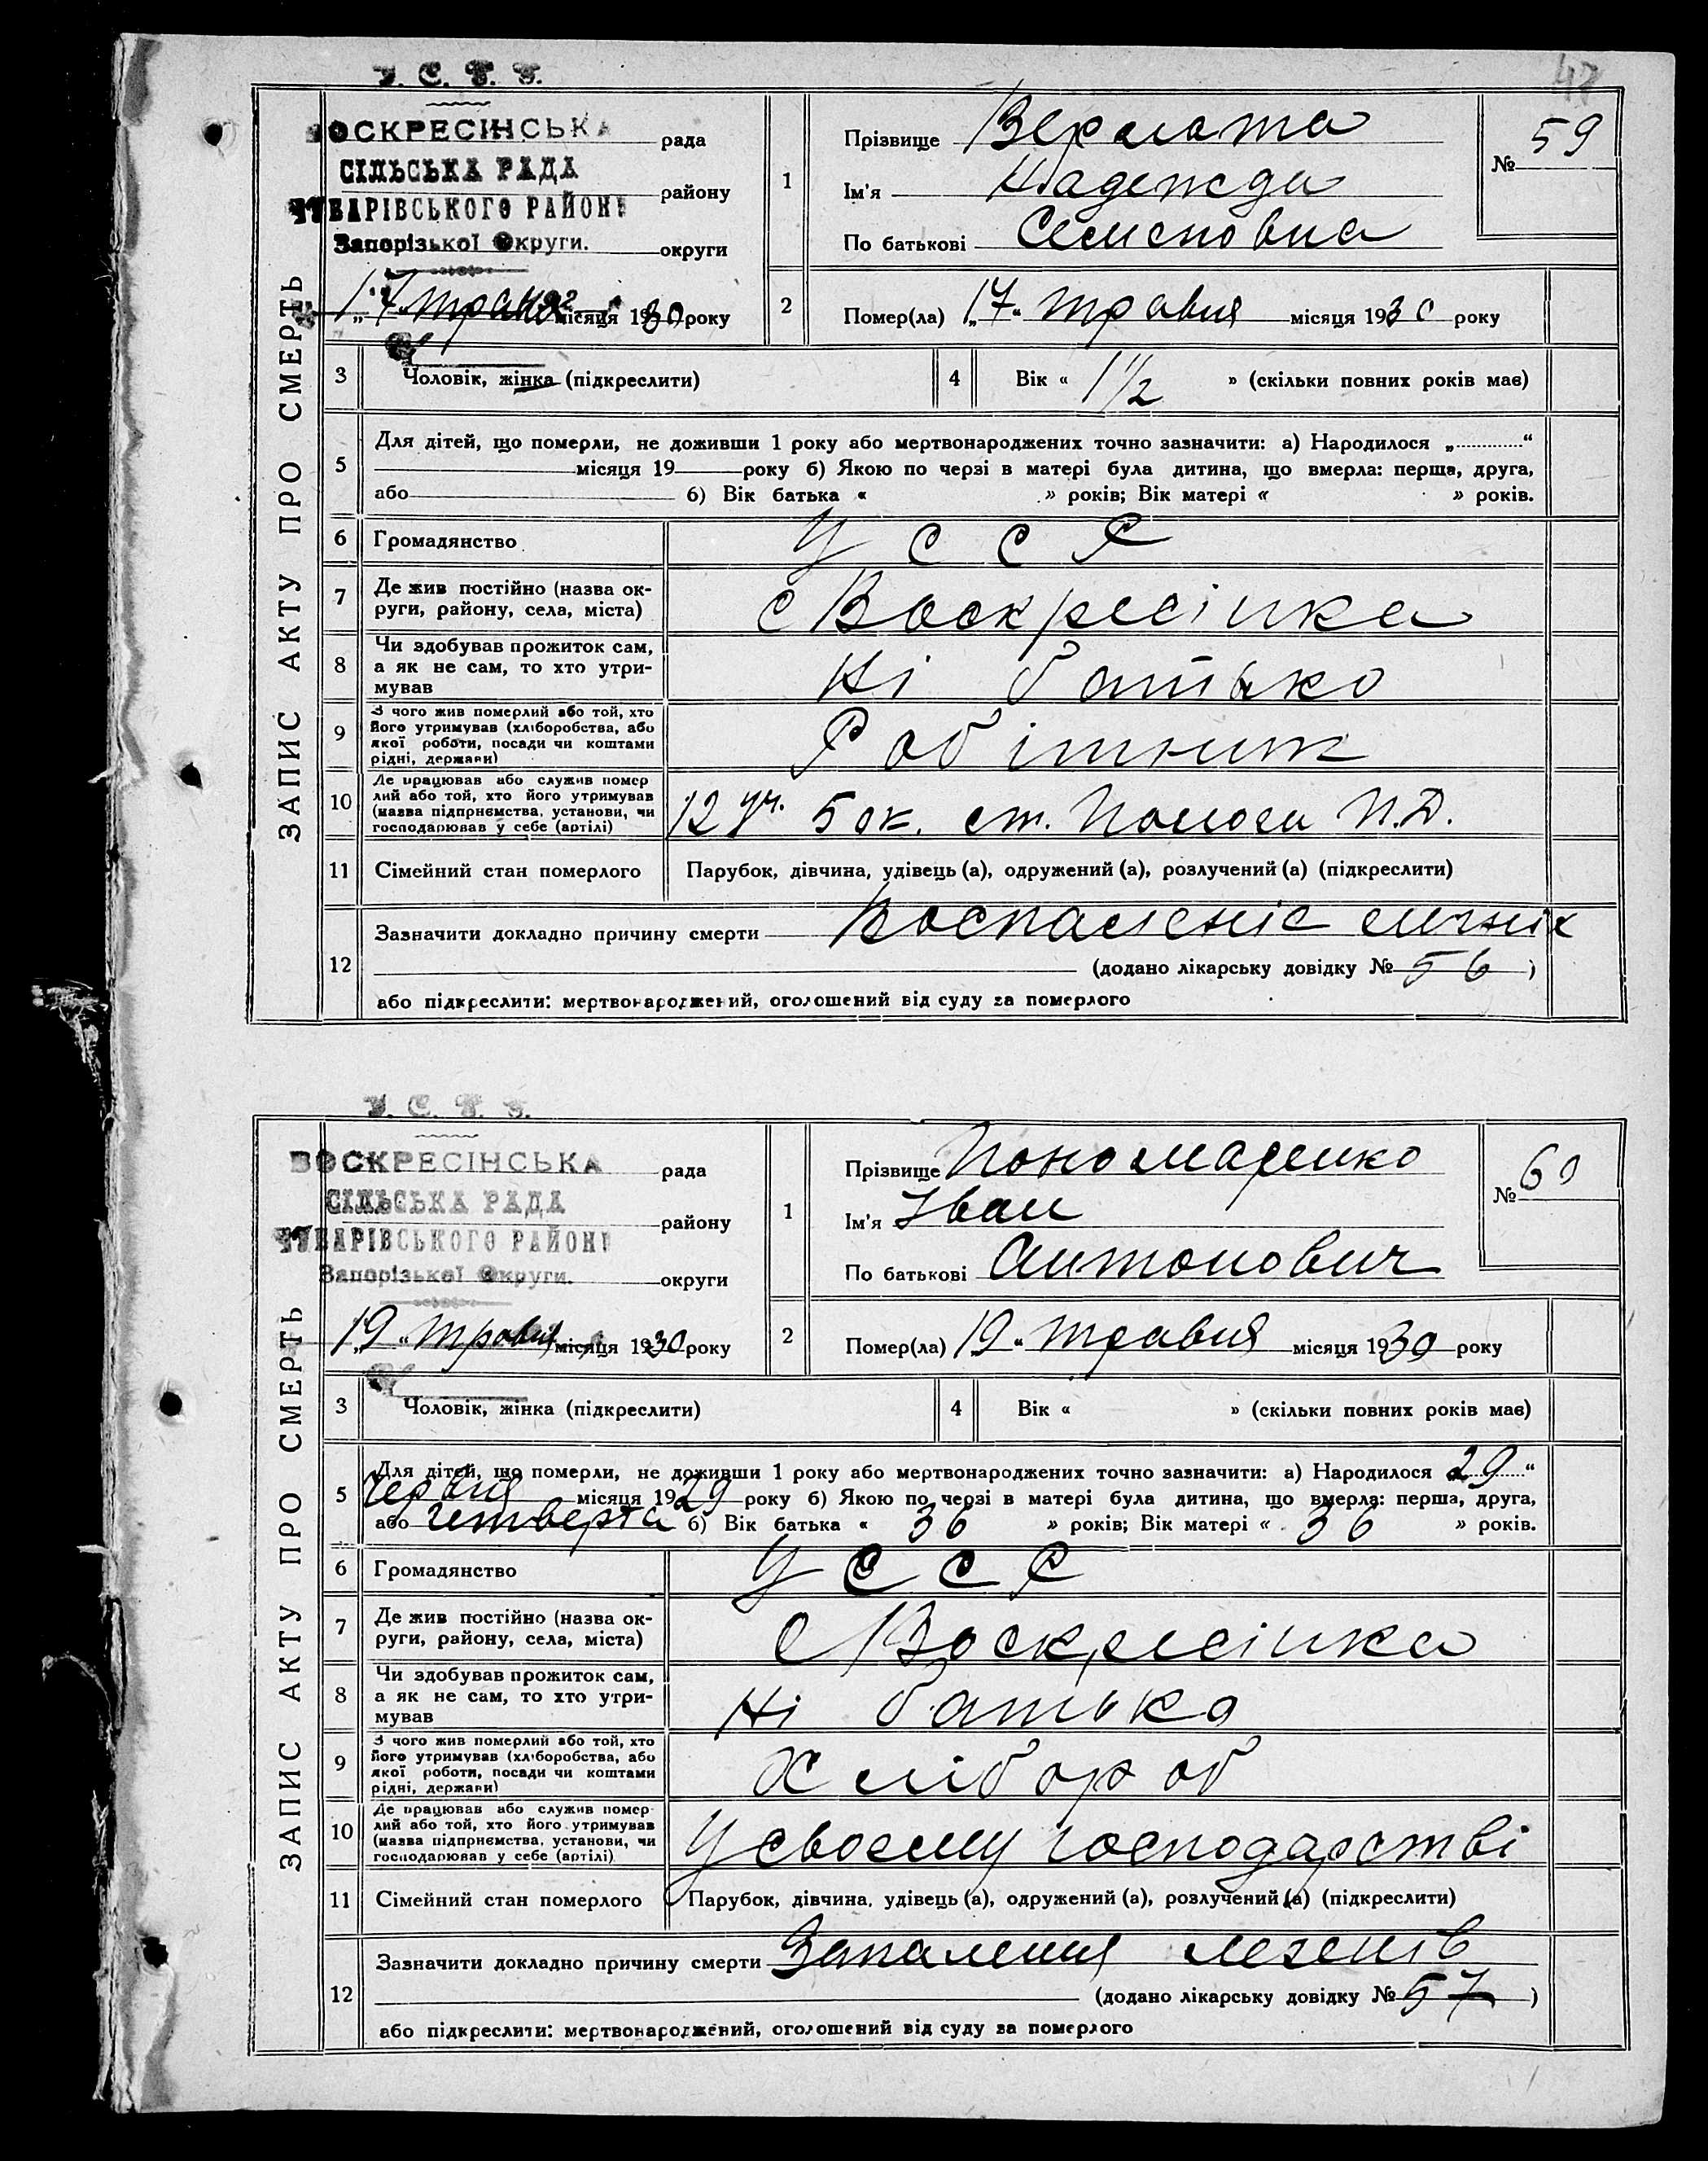 У. С. Р. Р.
47
ВОСКРЕСІНСЬКА рада
СІЛЬСЬКА РАДА району
ЧУБАРІВСЬКОГО РАЙОНУ
Запорізької Округи. округи
„17“ травня місяця 1930 року
ЗАПИС АКТУ ПРО СМЕРТЬ
1
Прізвище
Ім'я Надежда
По батькові Семеновна
№ 59
2 Помер(ла) „17“ травня місяця 1930 року
3 Чоловік, жінка (підкреслити)
4 Вік « 1 1/2 » (скільки повних років має)
5 Для дітей, що померли, не доживши 1 року або мертвонароджених точно зазначити: а) Народилося „ “
місяця 19 року б) Якою по черзі в матері була дитина, що вмерла: перша, друга,
або б) Вік батька « » років; Вік матері « » років.
6 Громадянство УССР
7 Де жив постійно (назва ок-
руги, району, села, міста) с Воскресінка
8 Чи здобував прожиток сам,
а як не сам, то хто утри-
мував Ні батько
9 З чого жив померлий або той, хто
його утримував (хліборобства, або
якої роботи, посади чи коштами
рідні, держави) Робітник
10 Де працював або служив помер
лий або той, хто його утримував
(назва підприємства, установи, чи
господарював у себе (артілі) 12 уч. 5 ок. ст. Пологи
11 Сімейний стан померлого Парубок, дівчина, удівець (а), одружений (а), розлучений (а) (підкреслити)
12 Зазначити докладно причину смерти Воспаленіє
(додано лікарську довідку № 56 )
або підкреслити: мертвонароджений, оголошений від суду за померлого
У. С. Р. Р.
ВОСКРЕСІНСЬКА рада
СІЛЬСЬКА РАДА району
ЧУБАРІВСЬКОГО РАЙОНУ
Запорізької Округи. округи
„19“ травня місяця 1930 року
ЗАПИС АКТУ ПРО СМЕРТЬ
1
Прізвище Пономаренко
Ім'я Іван
По батькові Антонович
№ 60
2 Помер(ла) „19“ травня місяця 1930 року
3 Чоловік, жінка (підкреслити)
4 Вік « » (скільки повних років має)
5 Для дітей, що померли, не доживши 1 року або мертвонароджених точно зазначити: а) Народилося „29“
червня місяця 1929 року б) Якою по черзі в матері була дитина, що вмерла: перша, друга,
або четверта б) Вік батька « 36 » років; Вік матері « 36 » років.
6 Громадянство УССР
7 Де жив постійно (назва ок-
руги, району, села, міста) с Воскресінка
8 Чи здобував прожиток сам,
а як не сам, то хто утри-
мував Ні батько
9 З чого жив померлий або той, хто
його утримував (хліборобства, або
якої роботи, посади чи коштами
рідні, держави) Хлібороб
10 Де працював або служив помер
лий або той, хто його утримував
(назва підприємства, установи, чи
господарював у себе (артілі) У своему господарстві
11 Сімейний стан померлого Парубок, дівчина, удівець (а), одружений (а), розлучений (а) (підкреслити)
12 Зазначити докладно причину смерти Запалення легенів
(додано лікарську довідку № 57 )
або підкреслити: мертвонароджений, оголошений від суду за померлого